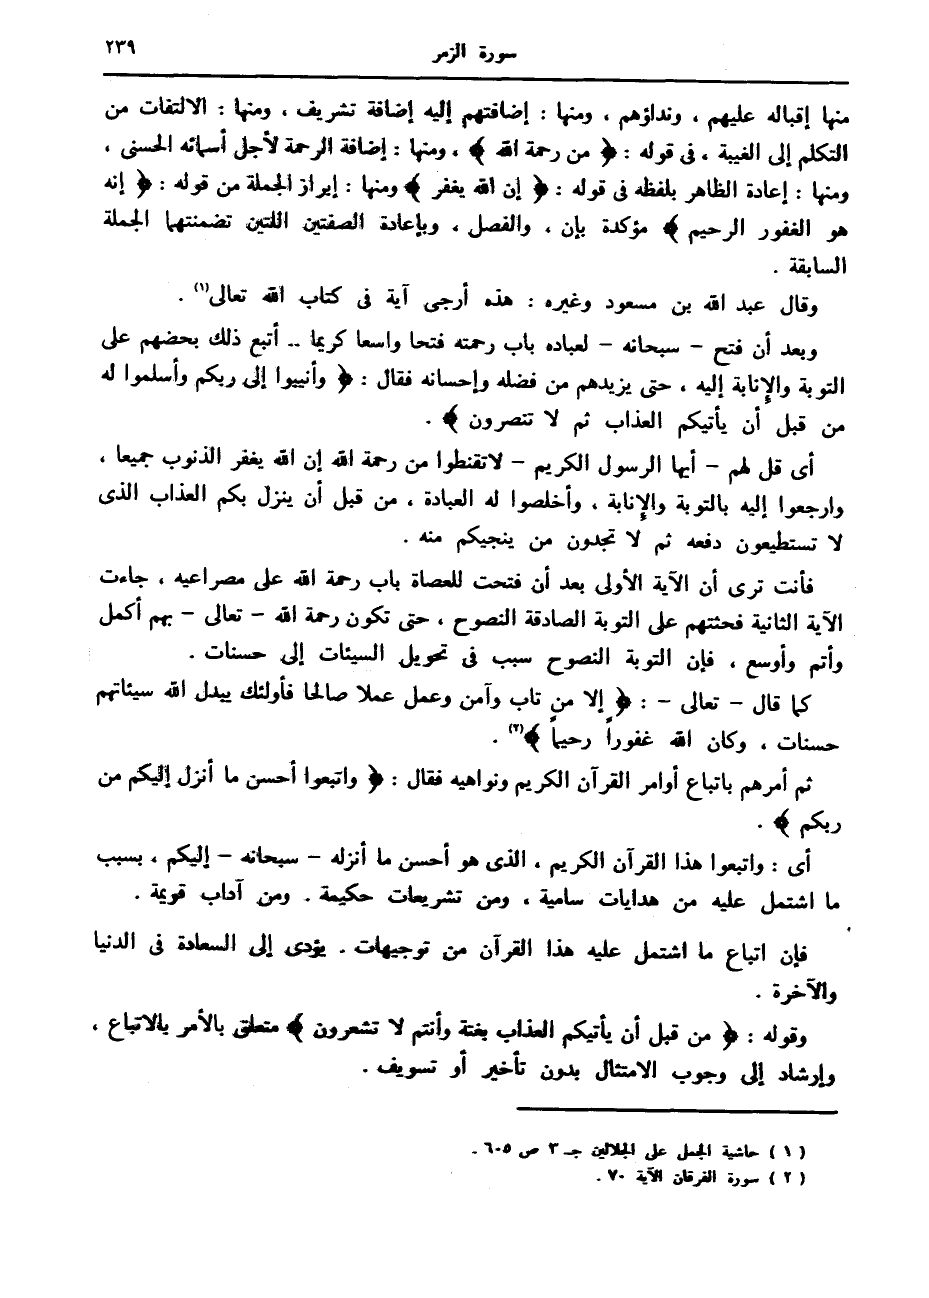 سورة الزمر ٢٣٩
منها إقباله عليهم ، ونداؤهم ، ومنها : إضافتهم إليه إضافة تشريف ، ومنها : الالتفات من
التكلم إلى الغيبة ، فى قوله : ﴿ من رحمة الله ﴾ ، ومنها : إضافة الرحمة لأجل أسمائه الحسنى ،
ومنها : إعادة الظاهر بلفظه فى قوله : ﴿ إن الله يغفر ﴾ ومنها : إبراز الجملة من قوله : ﴿ إنه
هو الغفور الرحيم ﴾ مؤكدة بإن ، والفصل ، وبإعادة الصفتين اللتين تضمنتهما الجملة
السابقة .
وقال عبد الله بن مسعود وغيره : هذه أرجى آية فى كتاب الله تعالى(١) .
وبعد أن فتح – سبحانه – لعباده باب رحمته فتحا واسعا كريما .. أتبع ذلك بحضهم على
التوبة والإِنابة إليه ، حتى يزيدهم من فضله وإحسانه فقال : ﴿ وأنيبوا إلى ربكم وأسلموا له
من قبل أن يأتيكم العذاب ثم لا تنصرون ﴾ .
أى قل لهم – أيها الرسول الكريم – لاتقنطوا من رحمة الله إن الله يغفر الذنوب جميعا ،
وارجعوا إليه بالتوبة والإِنابة ، وأخلصوا له العبادة ، من قبل أن ينزل بكم العذاب الذى
لا تستطيعون دفعه ثم لا تجدون من ينجيكم منه .
فأنت ترى أن الآية الأولى بعد أن فتحت للعصاة باب رحمة الله على مصراعيه ، جاءت
الآية الثانية فحثتهم على التوبة الصادقة النصوح ، حتى تكون رحمة الله – تعالى – بهم أكمل
وأتم وأوسع ، فإن التوبة النصوح سبب فى تحويل السيئات إلى حسنات .
كما قال – تعالى – : ﴿ إلا من تاب وآمن وعمل عملا صالحا فأولئك يبدل الله سيئاتهم
حسنات ، وكان الله غفوراً رحيماً ﴾(٢) .
ثم أمرهم باتباع أوامر القرآن الكريم ونواهيه فقال : ﴿ واتبعوا أحسن ما أنزل إليكم من
ربكم ﴾ .
أى : واتبعوا هذا القرآن الكريم ، الذى هو أحسن ما أنزله – سبحانه – إليكم ، بسبب
ما اشتمل عليه من هدايات سامية ، ومن تشريعات حكيمة . ومن آداب قويمة .
فإن اتباع ما اشتمل عليه هذا القرآن من توجيهات . يؤدى إلى السعادة فى الدنيا
والآخرة .
وقوله : ﴿ من قبل أن يأتيكم العذاب بغتة وأنتم لا تشعرون ﴾ متعلق بالأمر بالاتباع ،
وإرشاد إلى وجوب الامتثال بدون تأخير أو تسويف .
( ١ ) حاشية الجمل على الجلالين جـ ٣ ص ٦٠٥ .
( ٢ ) سورة الفرقان الآية ٧٠ .